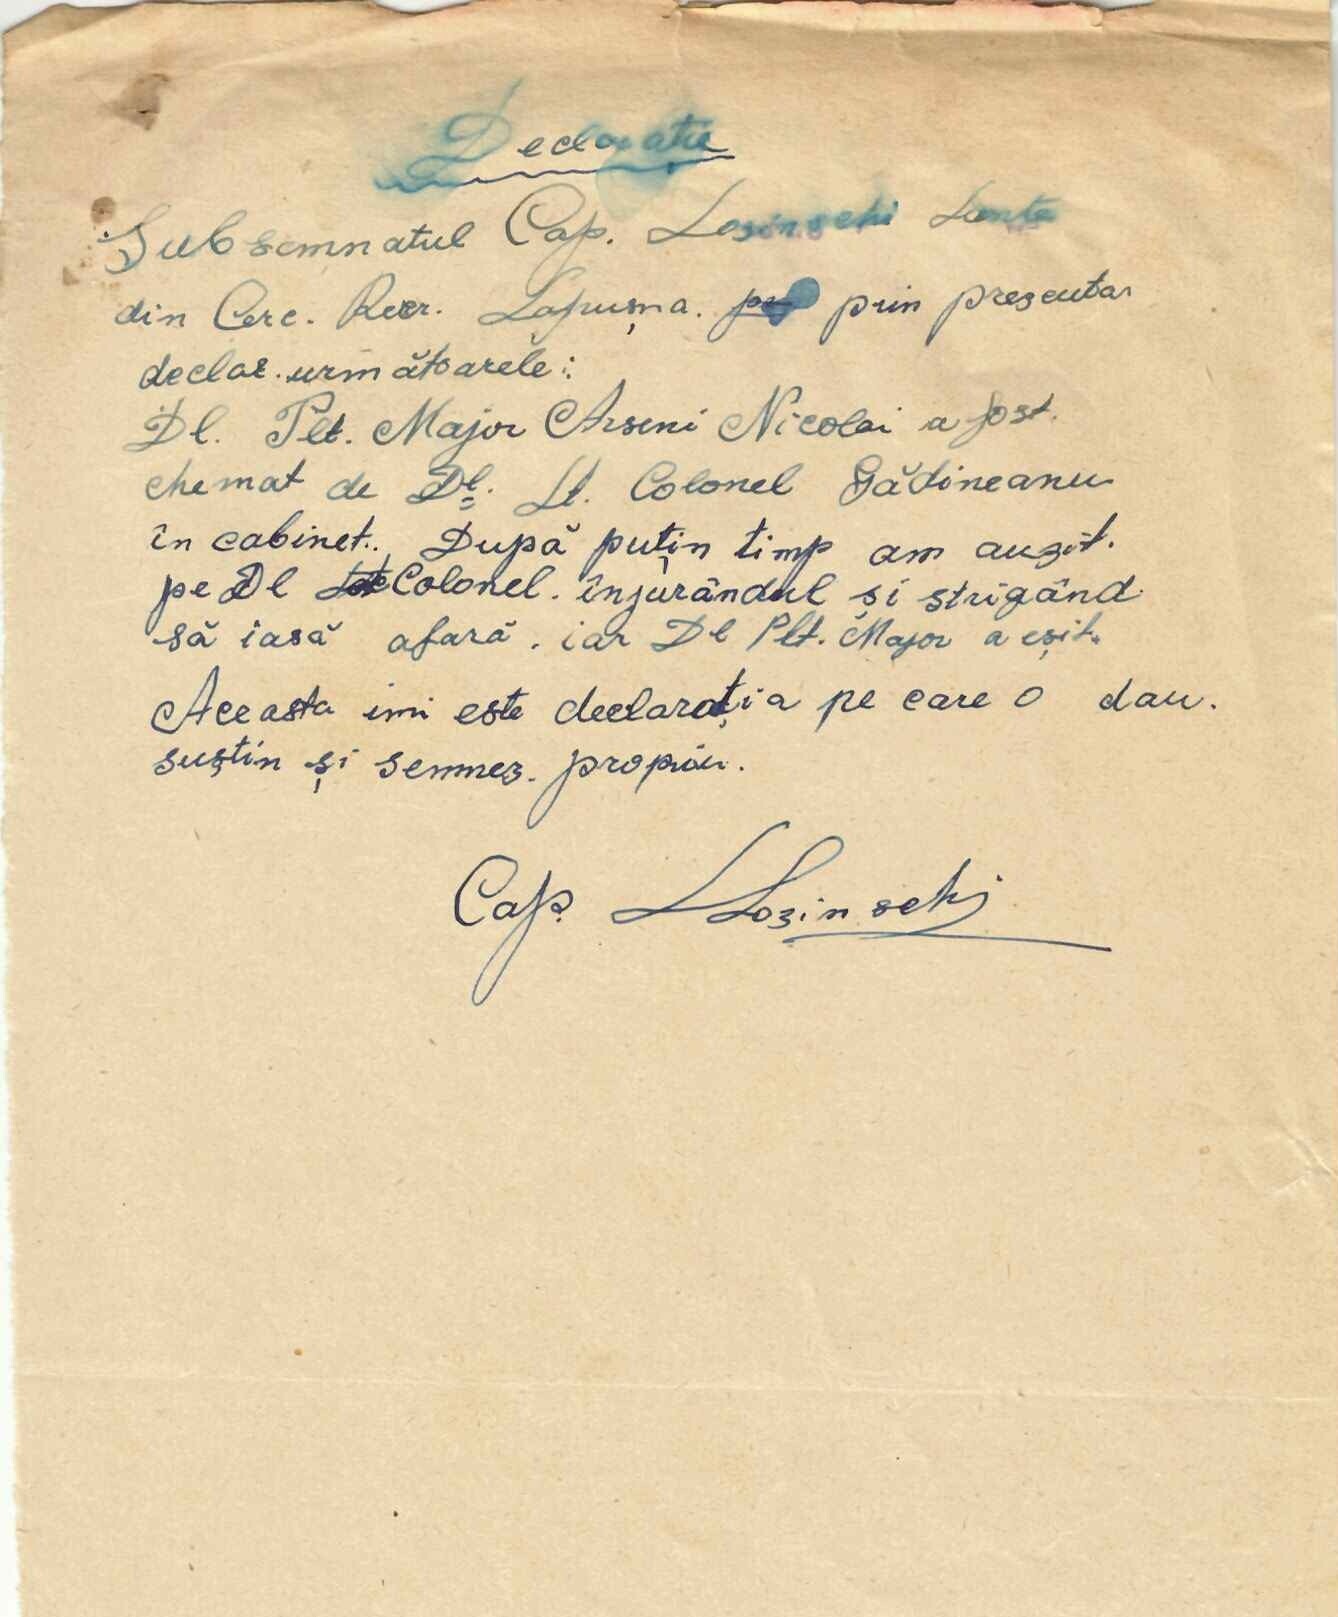 Declarație
Subsemnatul Cap. Losinschi
din Cerc. Recr. Lăpușna. prin prezenta
declar. următoarele:
Dl. Plt. Major Arseni Nicolai a fost.
chemat de Dl. Lt. Colonel Gădineanu
în cabinet. După puțin timp am auzit.
pe Dl Colonel. înjurându'l și strigând
să iasă afară. iar Dl Plt. Major a eșit.
Aceasta imi este declarația pe care o dau.
susțin și semnez. propriu.
Cap. LLozinschi